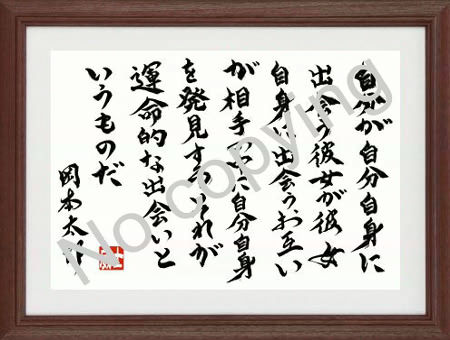 自分が自分自身に
出会う彼女が彼女
自身に出会うお互い
が相手の中に自分自身
を発見するそれが
運命的な出会いと
いうものだ
岡本太郎
No copying